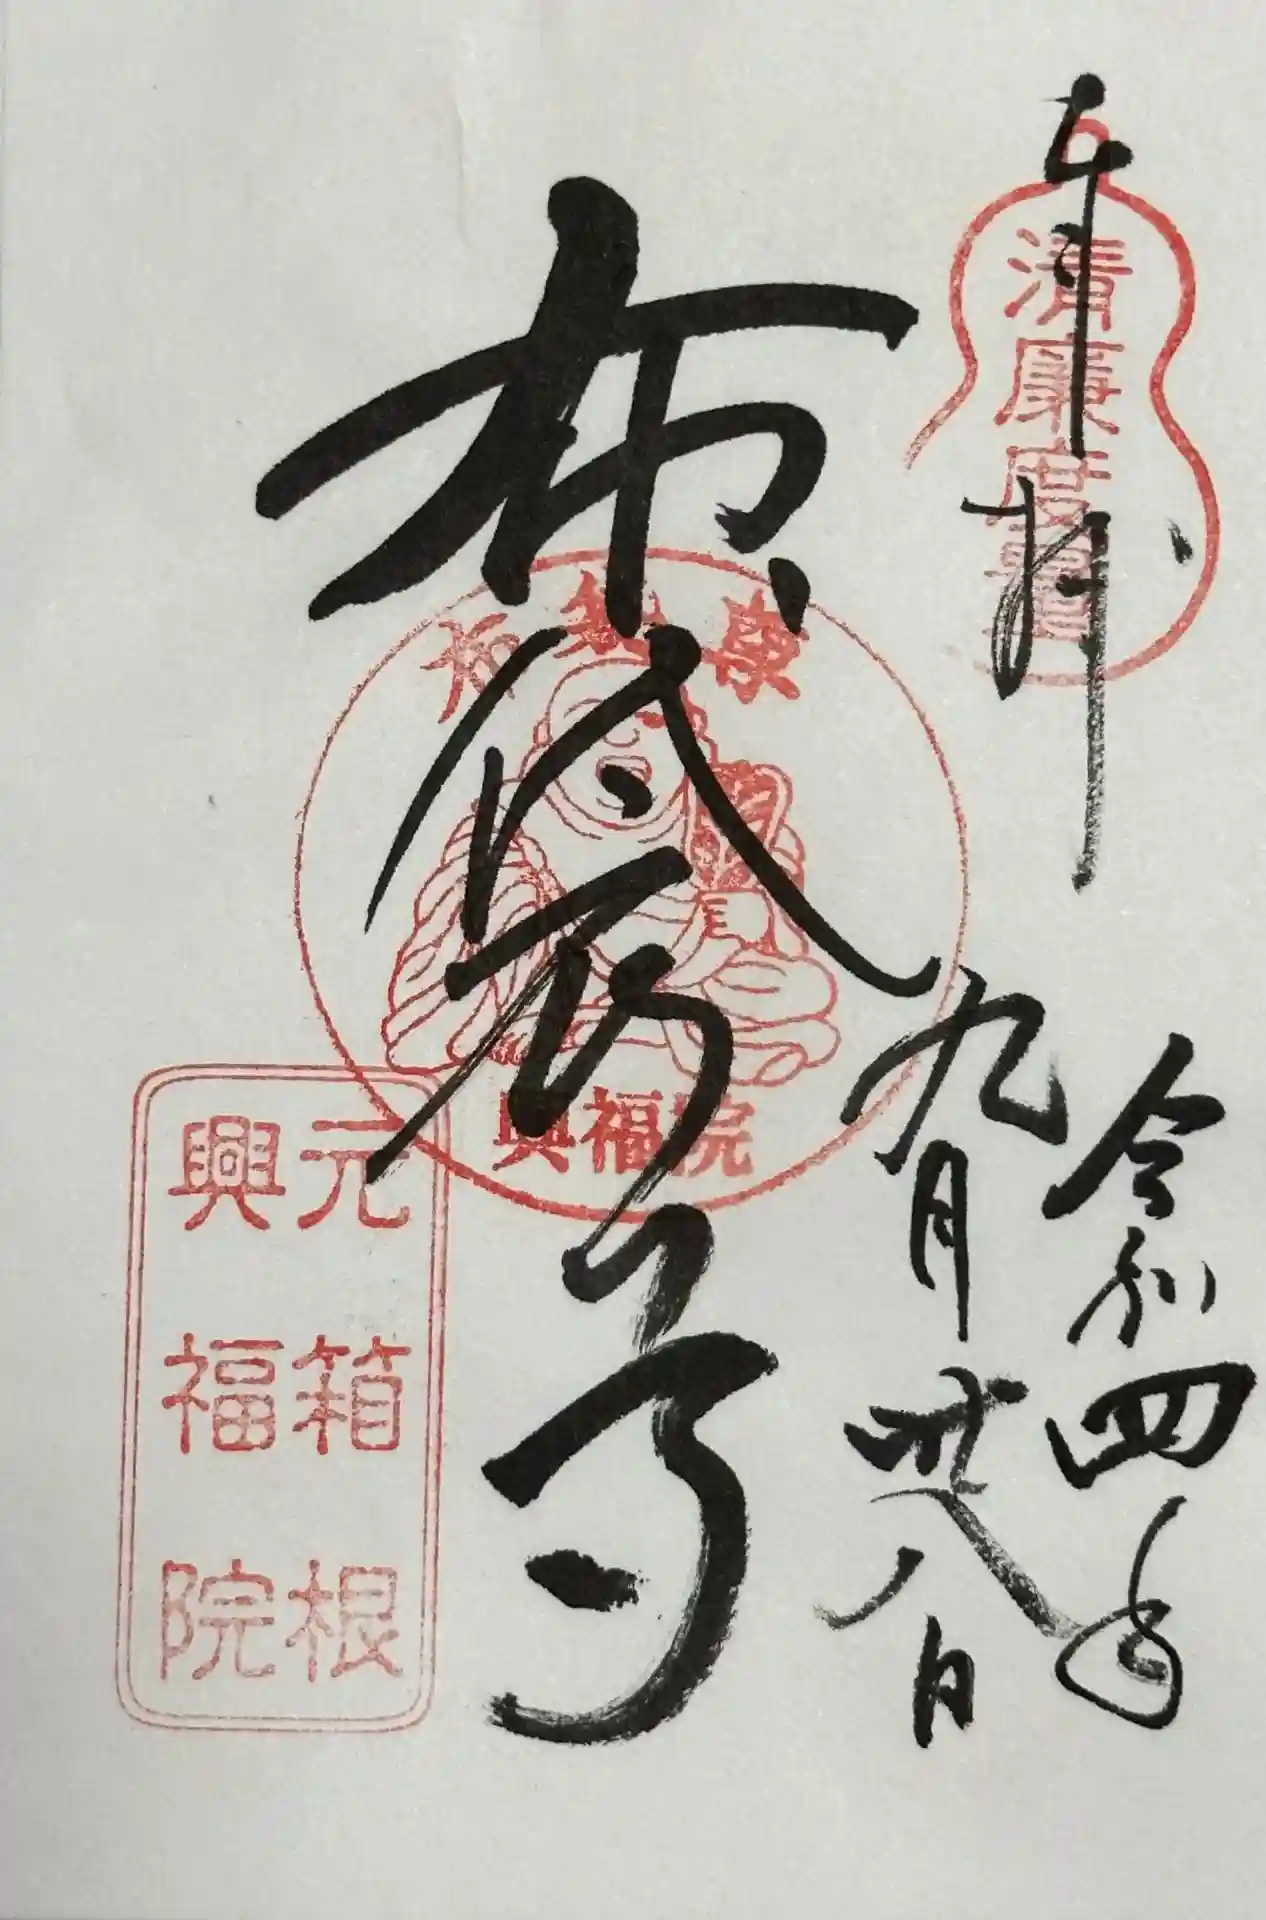 奉拝
清廉度量
令和四年
九月廿八日
布袋尊
興福院
元箱根
興福院